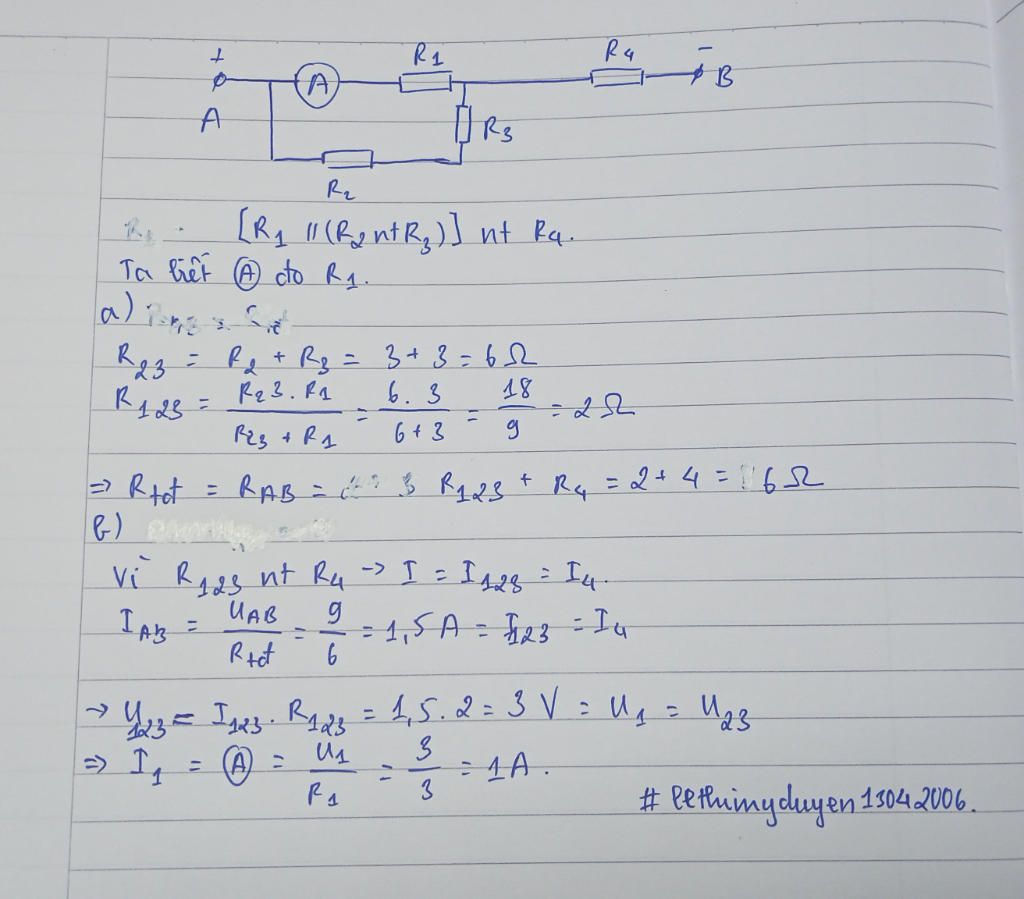 + R1 R4 -
A B
A R3
R2
[R1 // (R2 nt R3)] nt R4.
Ta biết Ⓐ đo R1.
a)
R23 = R2 + R3 = 3 + 3 = 6 Ω
R123 = R23 . R1 / R23 + R1 = 6 . 3 / 6 + 3 = 18 / 9 = 2 Ω
=> Rtđ = RAB = R123 + R4 = 2 + 4 = 6 Ω
b)
Vì R123 nt R4 -> I = I123 = I4.
IAB = UAB / Rtđ = 9 / 6 = 1,5 A = I123 = I4
-> U123 = I123 . R123 = 1,5 . 2 = 3 V = U1 = U23
=> I1 = Ⓐ = U1 / R1 = 3 / 3 = 1 A.
# lethimyduyen13042006.